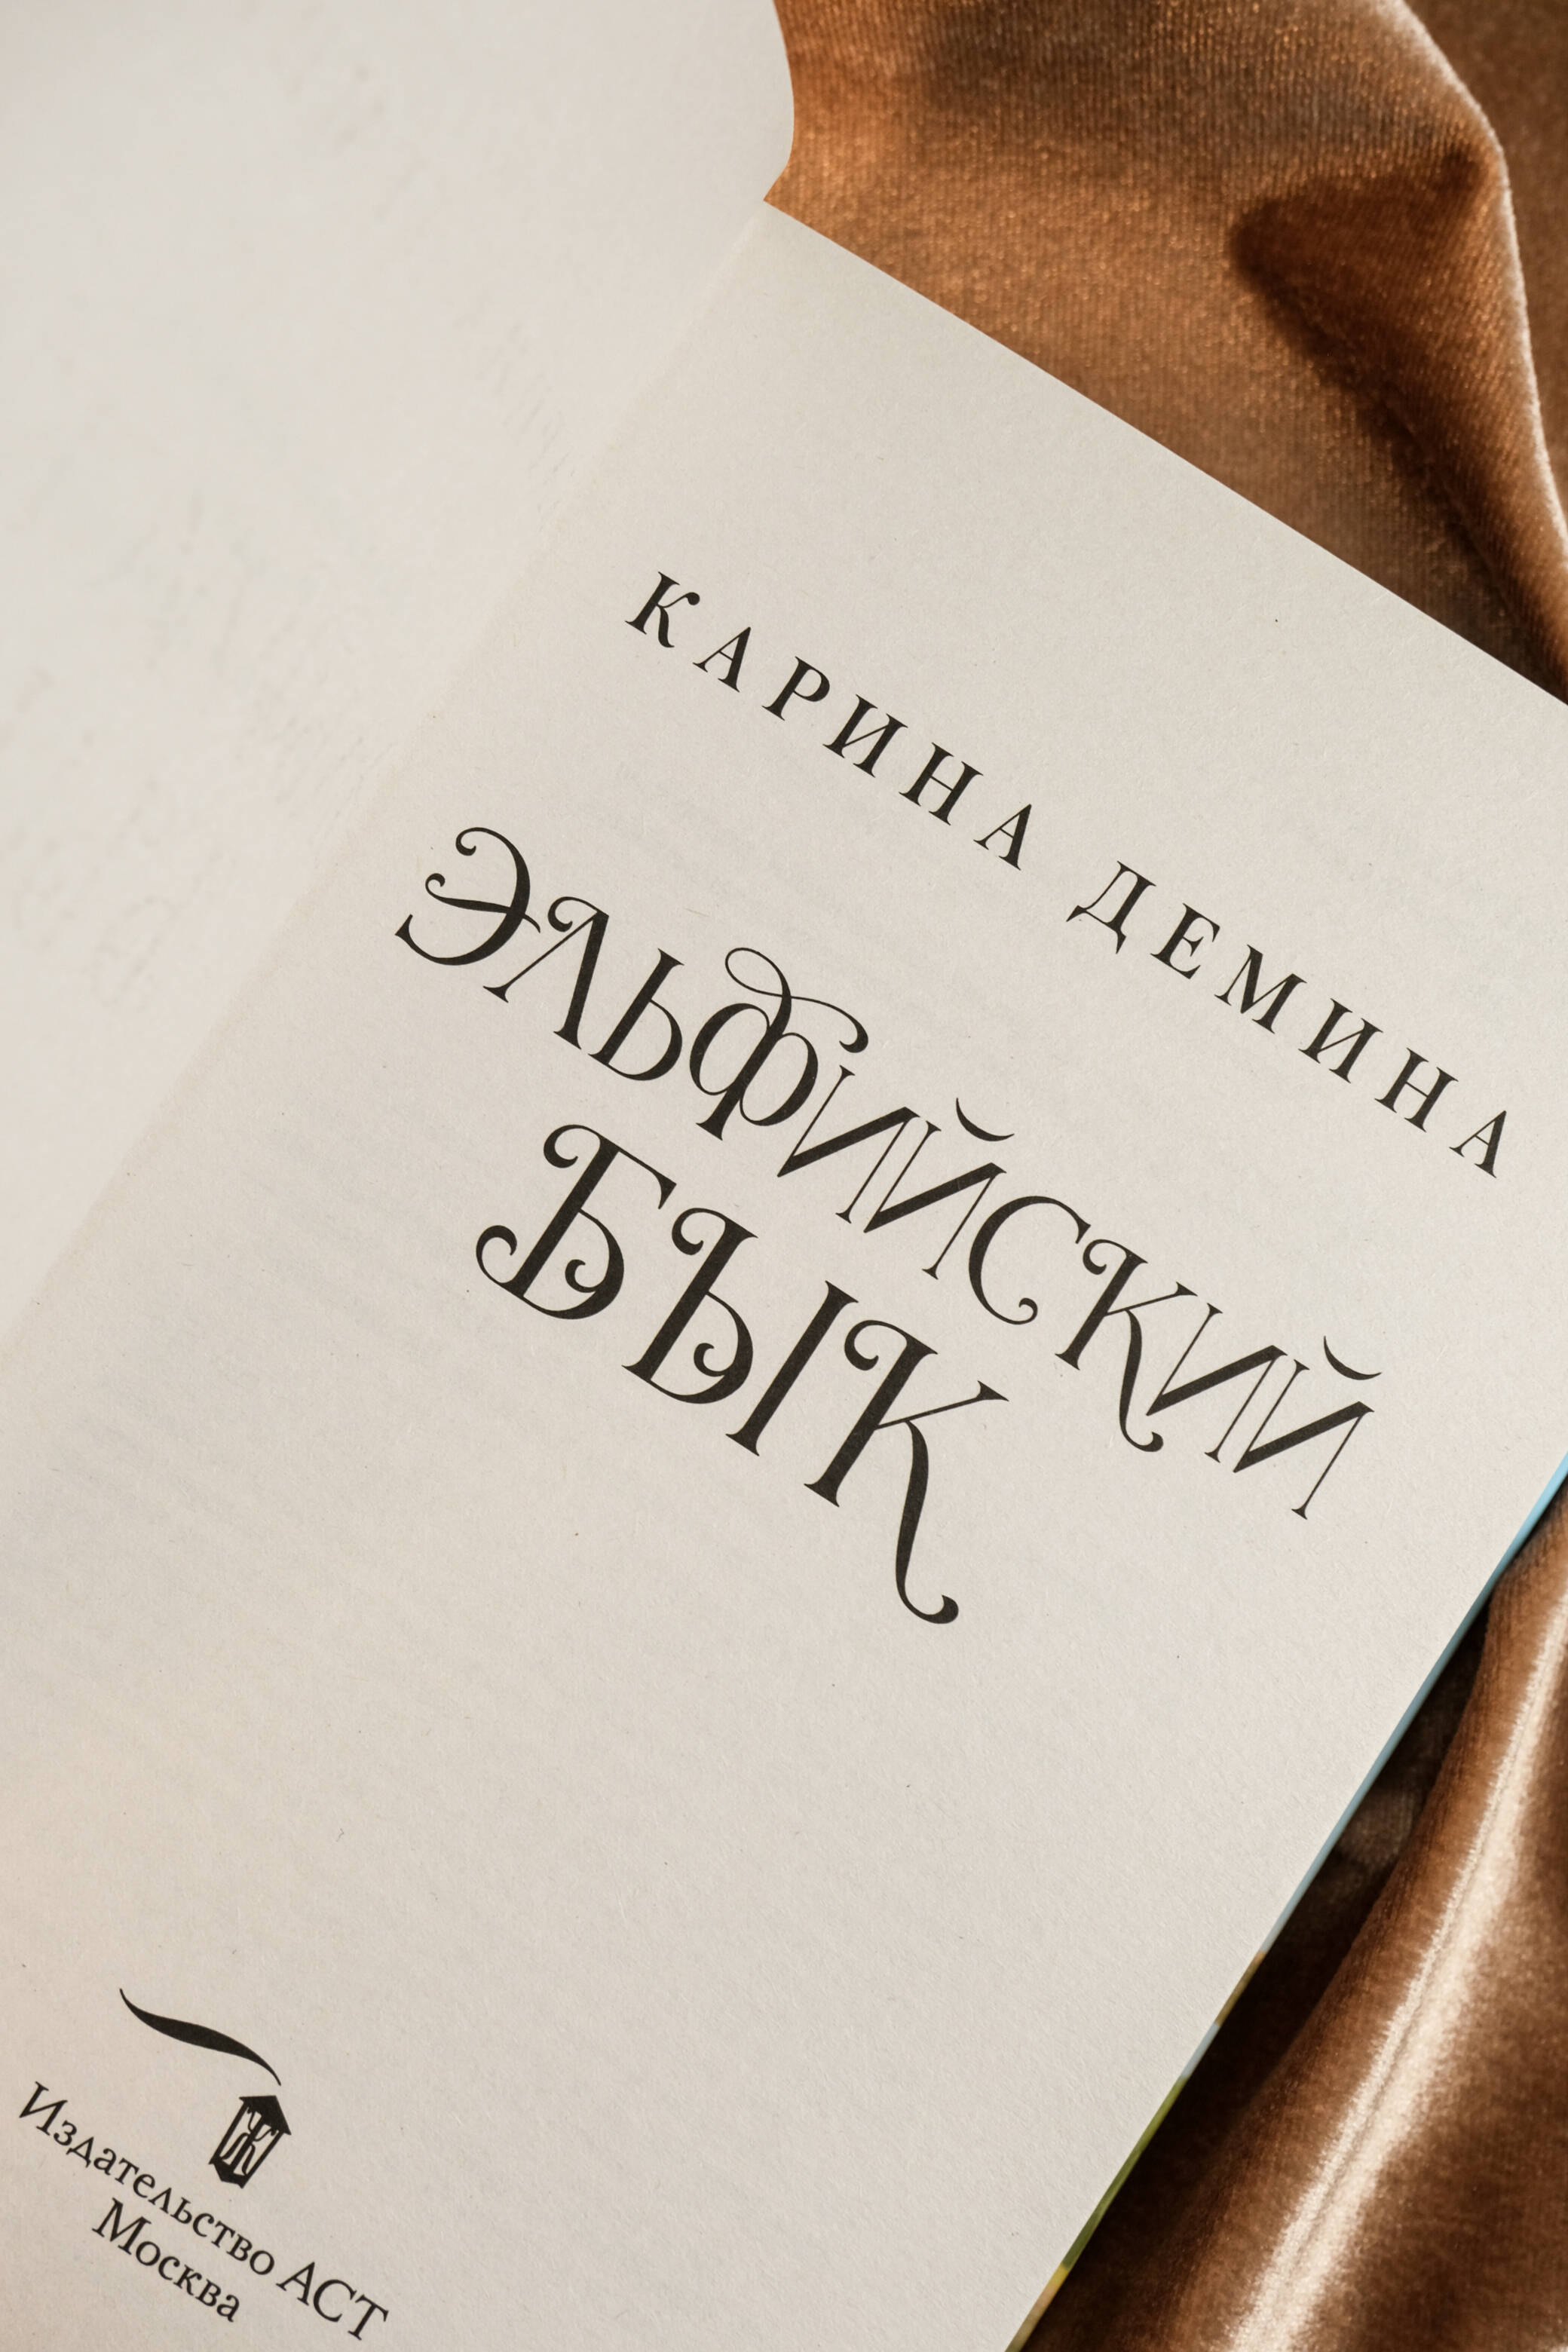 КАРИНА ДЕМИНА
ЭЛЬФИЙСКИЙ
БЫК
Издательство АСТ
Москва